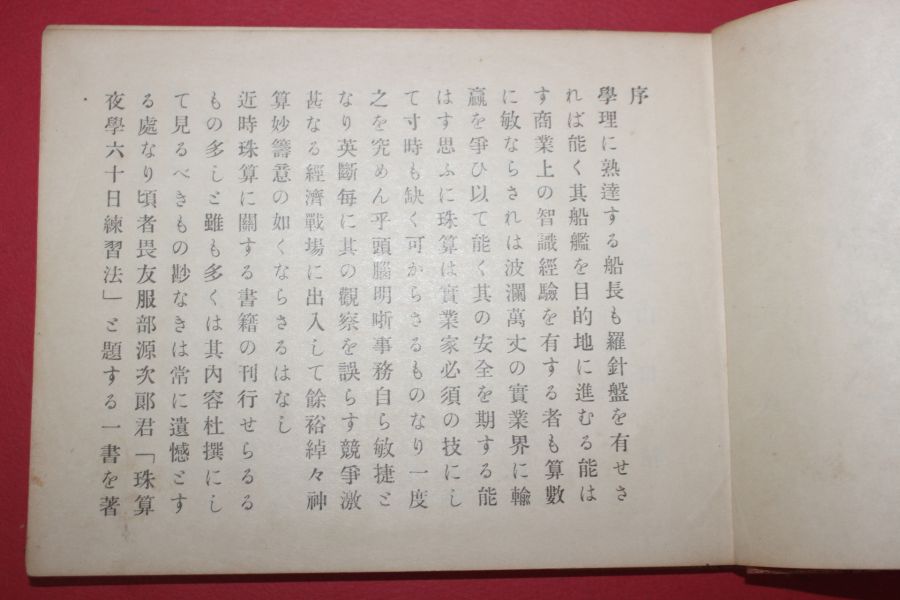 序
學理に熟達する船長も羅針盤を有せさ
れば能く其船艦を目的地に進むる能は
す商業上の智識經驗を有する者も算數
に敏ならされは波瀾萬丈の實業界に輸
贏を爭ひ以て能く其の安全を期する能
はす思ふに珠算は實業家必須の技にし
て寸時も缺く可からさるものなり一度
之を究めん乎頭腦明晰事務自ら敏捷と
なり英斷每に其の觀察を誤らす競爭激
甚なる經濟戰場に出入して餘裕綽々神
算妙籌意の如くならさるはなし
近時珠算に關する書籍の刊行せらるる
もの多しと雖も多くは其內容杜撰にし
て見るべきもの尠なきは常に遺憾とす
る處なり頃者畏友服部源次郞君「珠算
夜學六十日練習法」と題する一書を著